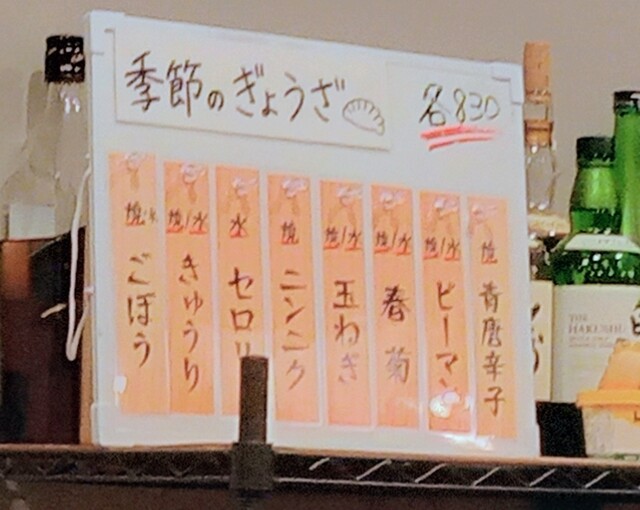 季節のぎょうざ
各830
焼 青唐辛子
焼/水 ピーマン
焼/水 春菊
焼/水 玉ねぎ
焼 ニンニク
水 セロリ
焼/水 きゅうり
焼/水 ごぼう
THE
HAKUSHU